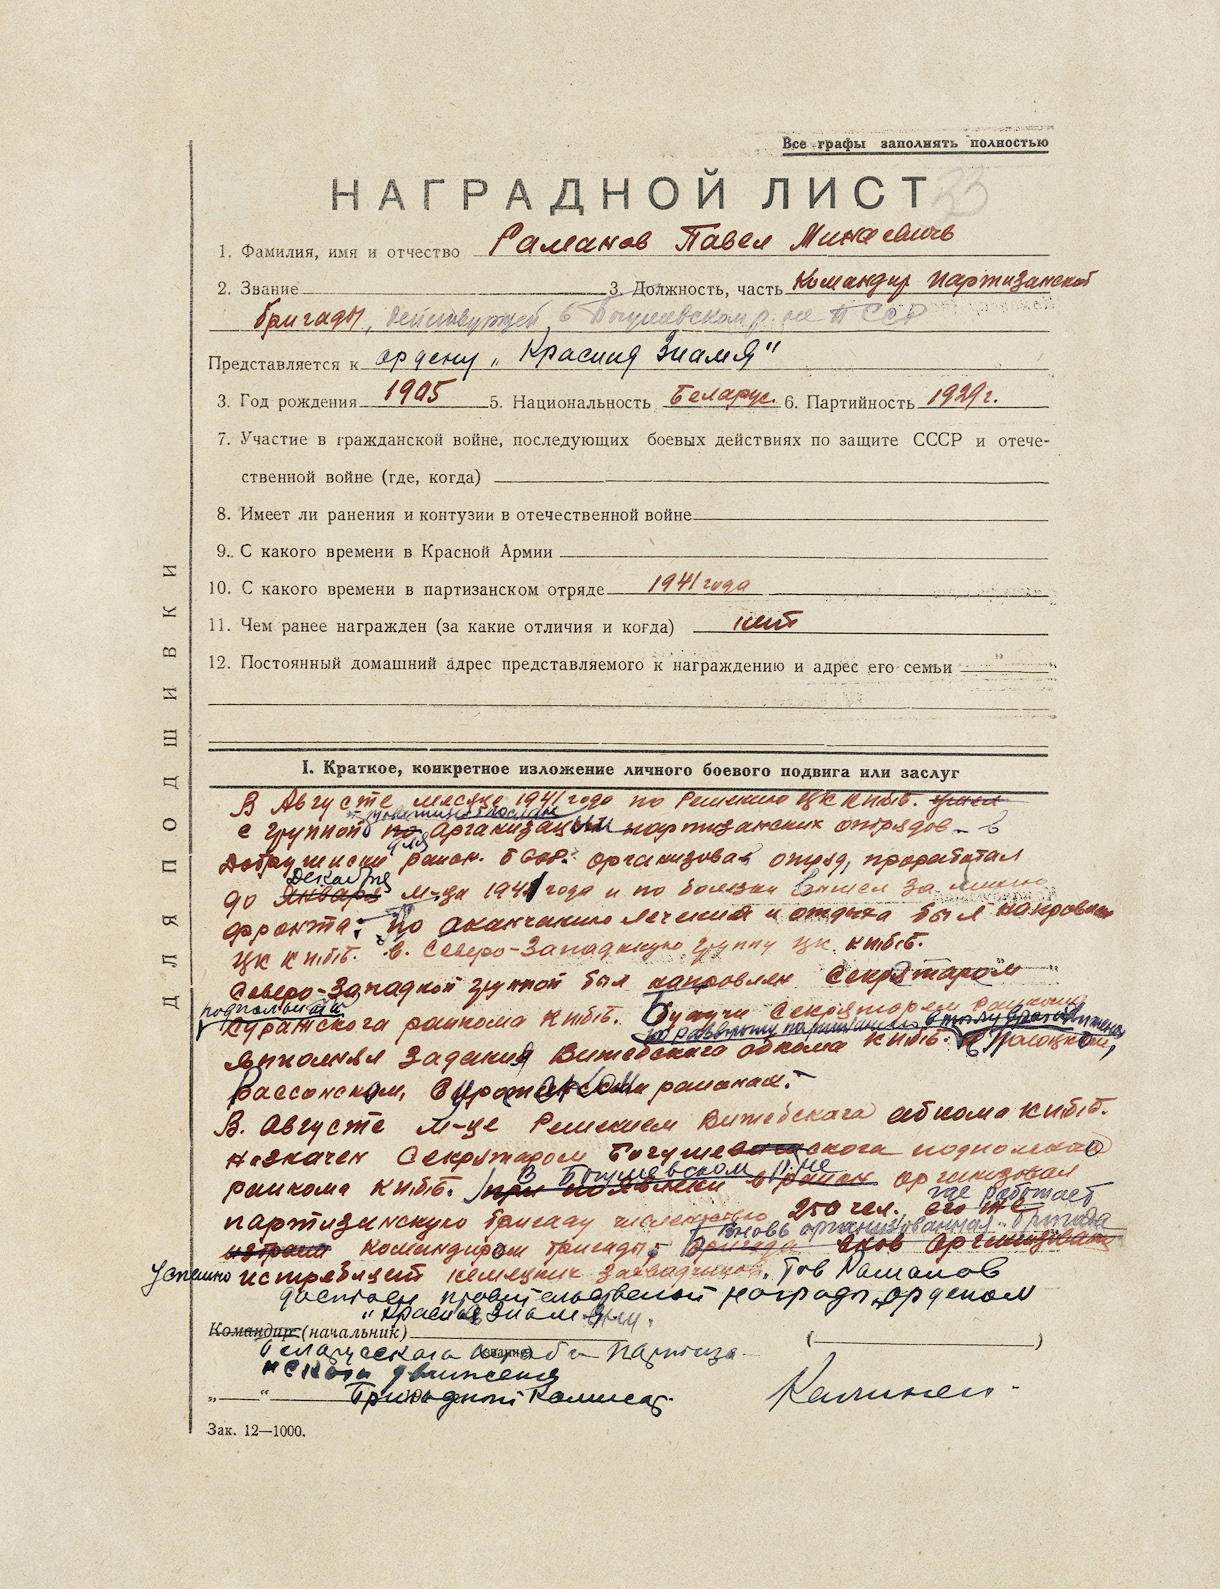 Все графы заполнять полностью
НАГРАДНОЙ ЛИСТ 33
1. Фамилия, имя и отчество Раманов Павел Минаевичь
2. Звание 3. Должность, часть Командир Партизанской
бригады, действующей в Богушевском р-не БССР
Представляется к ордену „Красная Знамя"
3. Год рождения 1905 5. Национальность Беларус. 6. Партийность 1929 г.
7. Участие в гражданской войне, последующих боевых действиях по защите СССР и отече-
ственной войне (где, когда)
8. Имеет ли ранения и контузии в отечественной войне
9. С какого времени в Красной Армии
10. С какого времени в партизанском отряде 1941 года
11. Чем ранее награжден (за какие отличия и когда) нет
12. Постоянный домашний адрес представляемого к награждению и адрес его семьи
ДЛЯ ПОДШИВКИ
I. Краткое, конкретное изложение личного боевого подвига или заслуг
В Августе месяце 1941 года по Решению ЦК КП(б)Б.
с группой для Организации партизанских отрядов в
Добрушский район. БССР. организовал отряд, проработал
декабря
до января м-ца 1941 года и по болезни вышел за линию
фронта. По оканчанию лечения и отдыха был направлен
ЦК КП(б)Б. в Северо-Западную группу ЦК КП(б)Б.
Северо-Западной группой был направлен Секрятаром
подпольного
Суражского райкома КП(б)Б. Будучи Секрятарем райкома
по развороту партизанского движения
выполнял Задания Витебского обкома КП(б)Б. в Полоцком,
Россонском, Суражском районах.
В Августе м-це Решением Витебскага абкома КП(б)Б.
назначен Секрятаром Богушевского подпольного
в Богушевском р-не
райкома КП(б)Б. при появлении в район организовал
партизинскую бригаду численностью 250 чел., его же где работает
вновь организованная бригада
командиром бригады. бригада вновь
Успешно истребляет немецких захватчиков. Тов Раманов
достоен правительственной награды орденом
„Красная Знамя".
Командир (начальник) ( )
Беларусского штаба Партиза-
нского движения
(звание)
„ “ Бригадный Комиссар. Калинин.
Зак. 12—1000.